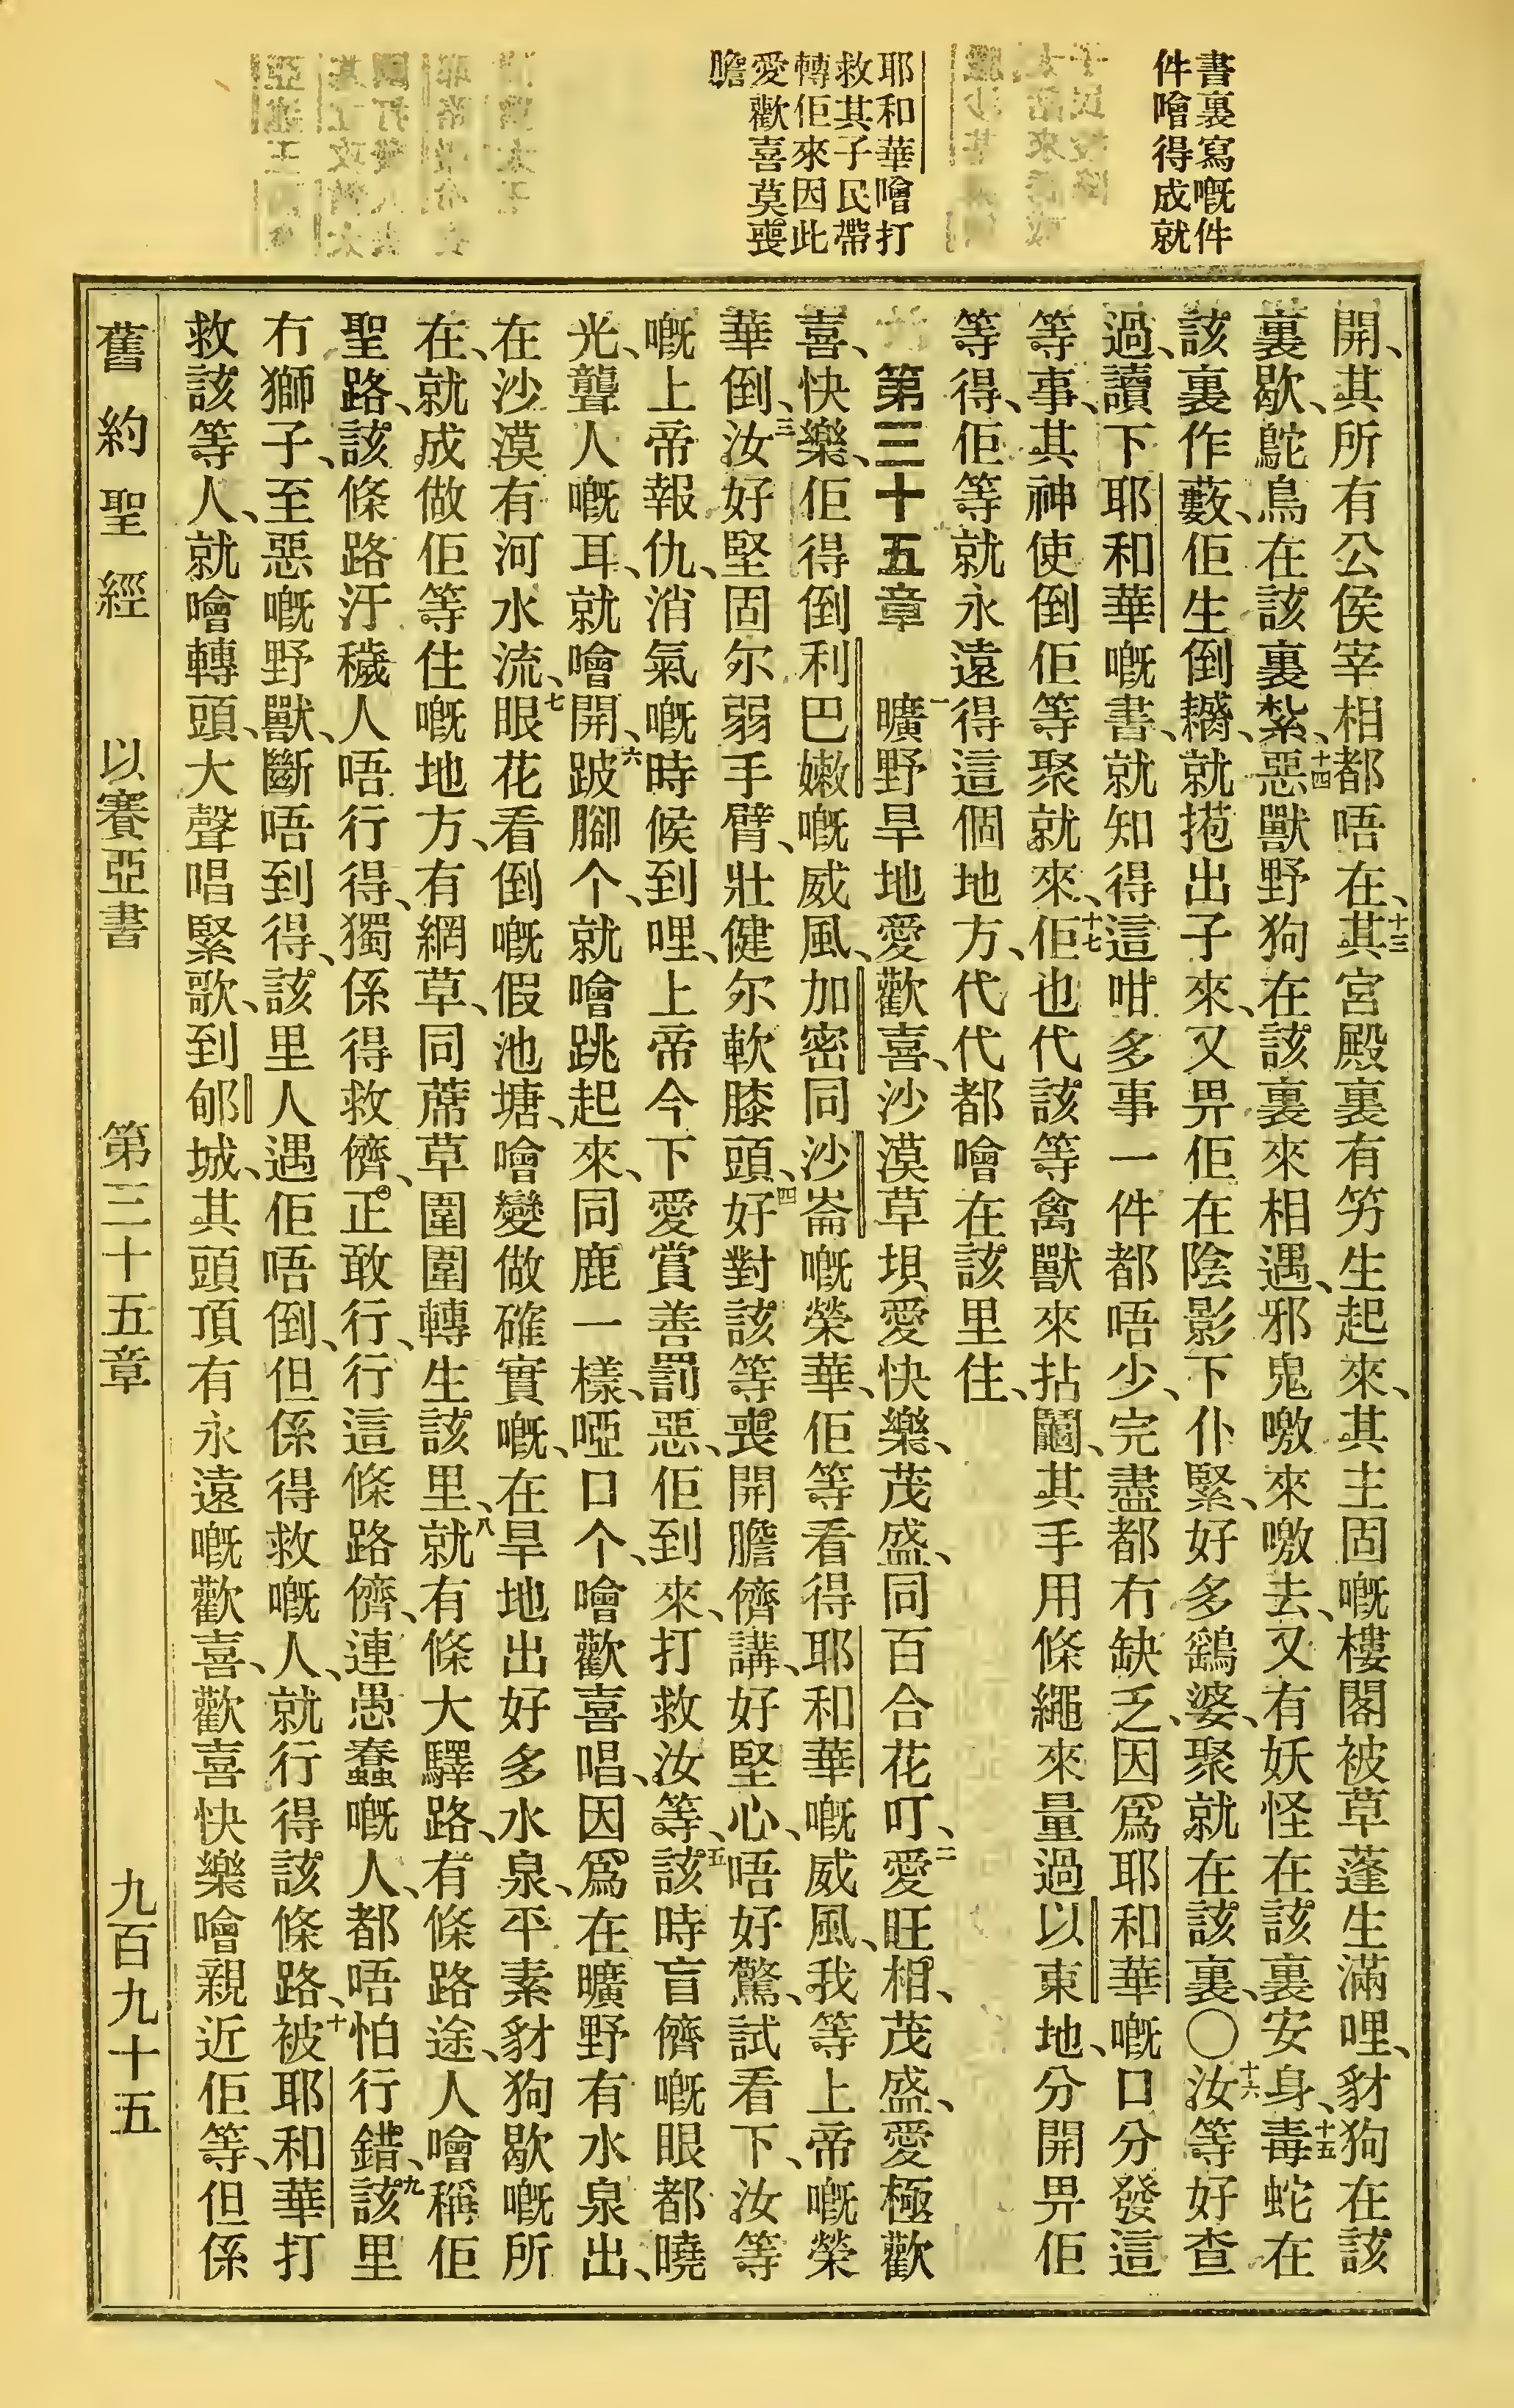 書裏寫嘅件
件噲得成就
耶和華噲打
救其子民帶
轉佢來因此
愛歡喜莫喪
膽
開、其所有公侯宰相都唔在、十三其宮殿裏有竻生起來、其主固嘅樓閣被草蓬生滿哩、豺狗在該
裏歇、鴕鳥在該裏紮、十四惡獸野狗在該裏來相遇、邪鬼噭來噭去、又有妖怪在該裏安身、十五毒蛇在
該裏作藪、佢生倒就挹出子來、又畀佢在陰影下仆緊、好多鷂婆、聚就在該裏、〇十六汝等好查
過、讀下耶和華嘅書、就知得這咁多事一件都唔少、完盡都冇缺乏、因爲耶和華嘅口分發這
等事、其神使倒佢等聚就來、十七佢也代該等禽獸來拈鬮、其手用條繩來量過以東地、分開畀佢
等得、佢等就永遠得這個地方、代代都噲在該里住、
第三十五章 一曠野旱地愛歡喜、沙漠草垻愛快樂、茂盛、同百合花叮、二愛旺相、茂盛、愛極歡
喜、快樂、佢得倒利巴嫩嘅威風、加密同沙崙嘅榮華、佢等看得耶和華嘅威風、我等上帝嘅榮
華倒、三汝好堅固尔弱手臂、壯健尔軟膝頭、四好對該等喪開膽儕講、好堅心、唔好驚、試看下、汝等
嘅上帝報仇、消氣嘅時候到哩、上帝今下愛賞善罰惡、佢到來、打救汝等、五該時盲儕嘅眼都曉
光、聾人嘅耳、就噲開、六跛腳个、就噲跳起來、同鹿一樣、啞口个、噲歡喜唱、因爲在曠野有水泉出、
在沙漠有河水流、七眼花看倒嘅假池塘、噲變做確實嘅、在旱地出好多水泉、平素豺狗歇嘅所
在、就成做佢等住嘅地方、有網草、同蓆草圍圍轉生該里、八就有條大驛路、有條路途、人噲稱佢
聖路、該條路汙穢人唔行得、獨係得救儕、正敢行、行這條路儕、連愚蠢嘅人、都唔怕行錯、九該里
冇獅子、至惡嘅野獸、斷唔到得、該里人遇佢唔倒、但係得救嘅人、就行得該條路、十被耶和華打
救該等人、就噲轉頭、大聲唱緊歌、到郇城、其頭頂有永遠嘅歡喜、歡喜快樂噲親近佢等、但係
舊約聖經 以賽亞書 第三十五章 九百九十五